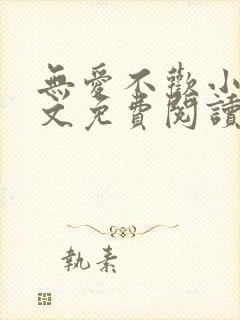 無愛不歡小
文免費閱讀
執素